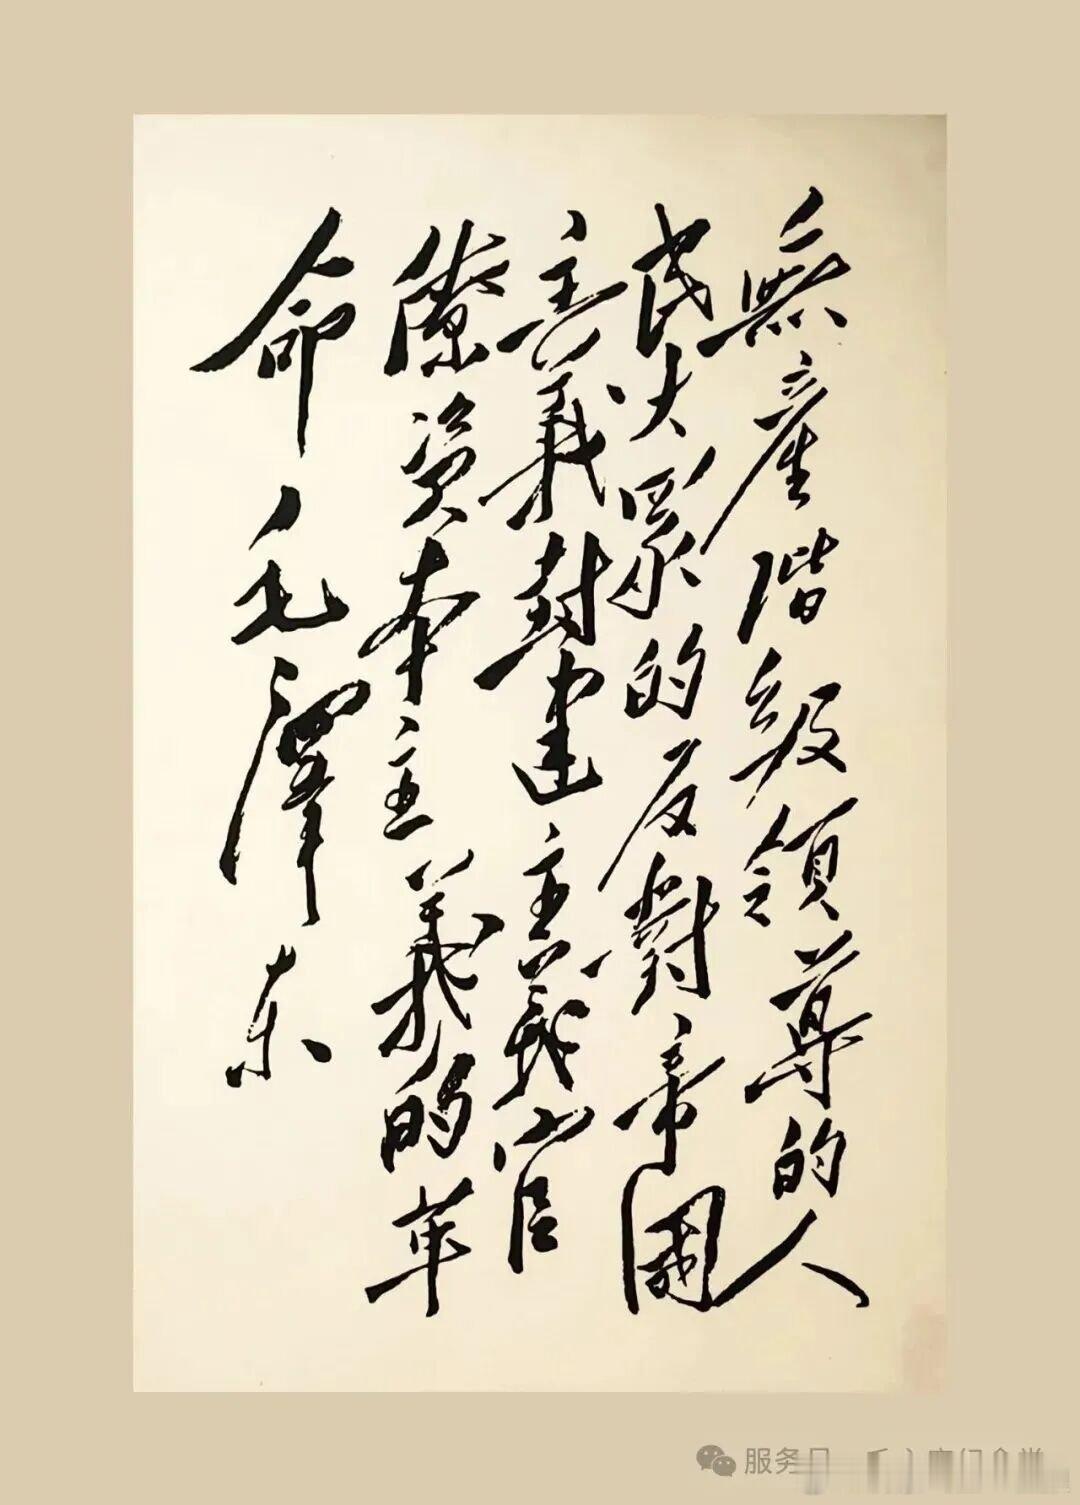 無產階級領導的人
民大眾的反對帝國
主義封建主義官
僚資本主義的革
命 毛澤东
服务号